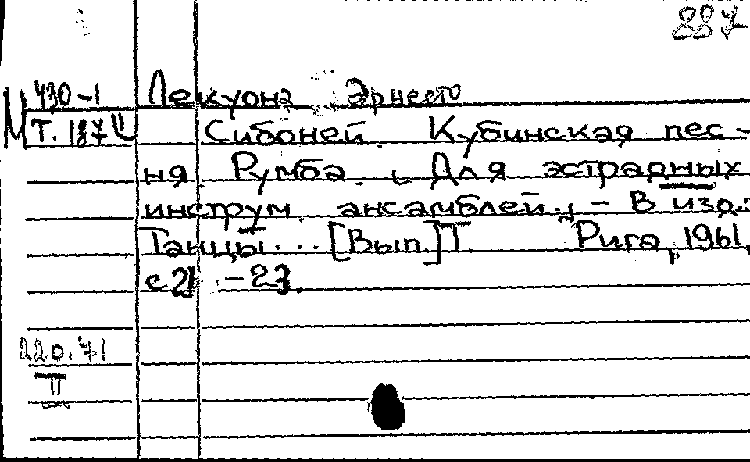 887
М 430-1
Т. 187 II
Лекуона Эрнесто
Сибоней. Кубинская пес-
ня Румба. Для эстрадных
инструм. ансамблей. - В изд.:
Танцы... [Вып.] Т Рига, 1961,
с 21 - 23.
220.71
II